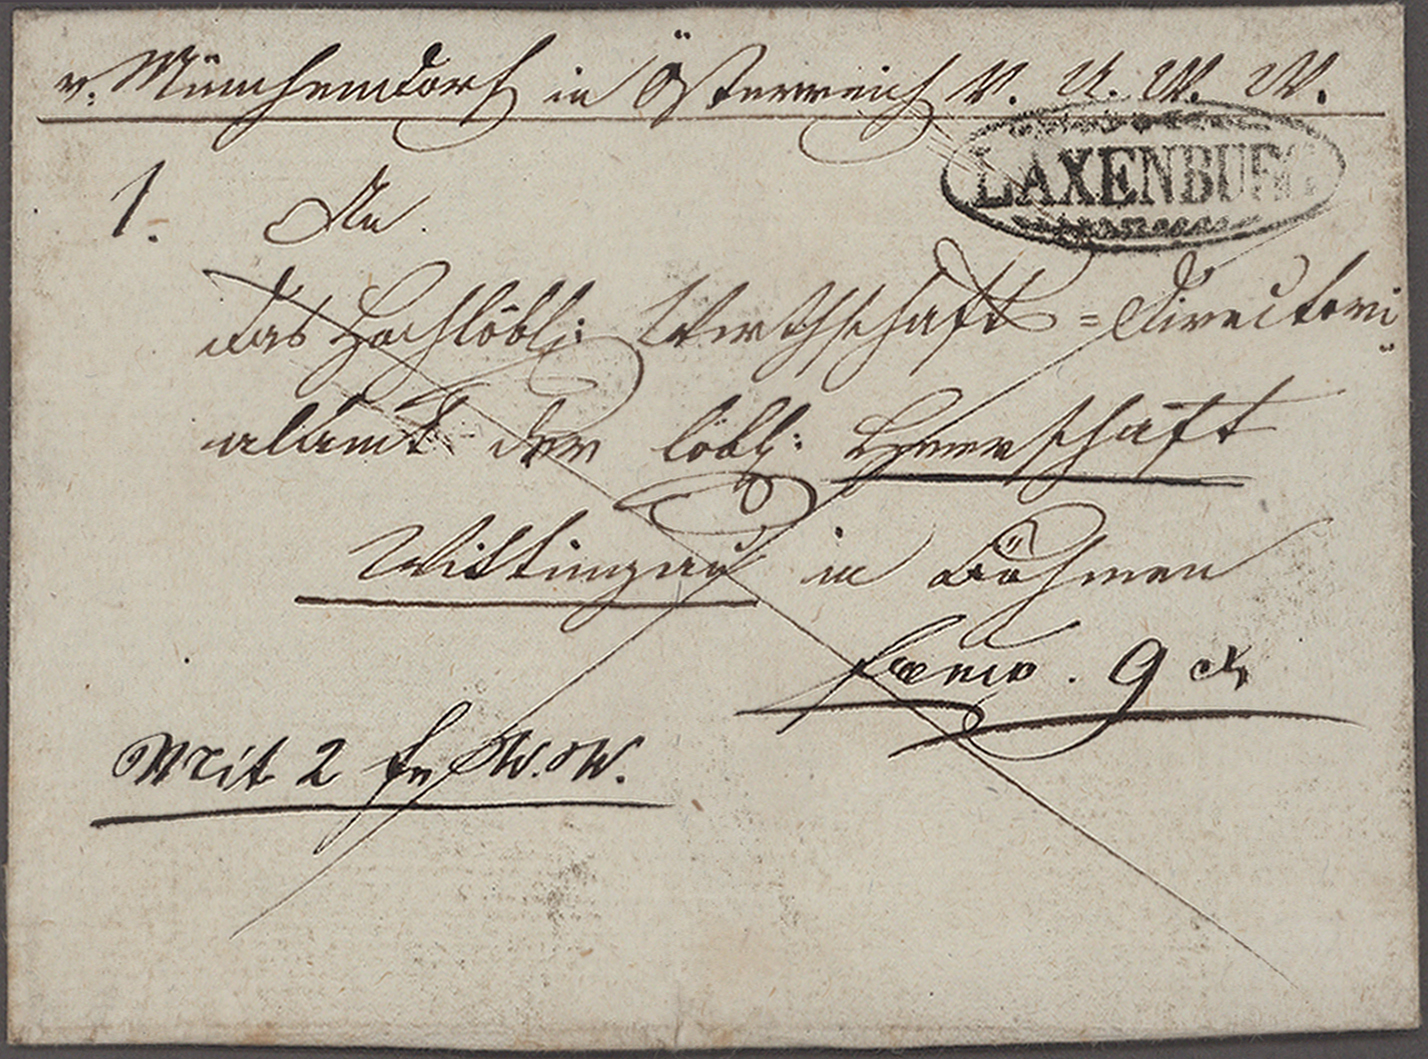 v. Münchendorf in Österreich V. U. W. W.
LAXENBURG
1. An
das Hochlöbl: Wirthschafts=Directori
alamt der löbl: Herrschaft
Wittingau in Böhmen
franco. 9
Mit 2 W. W.